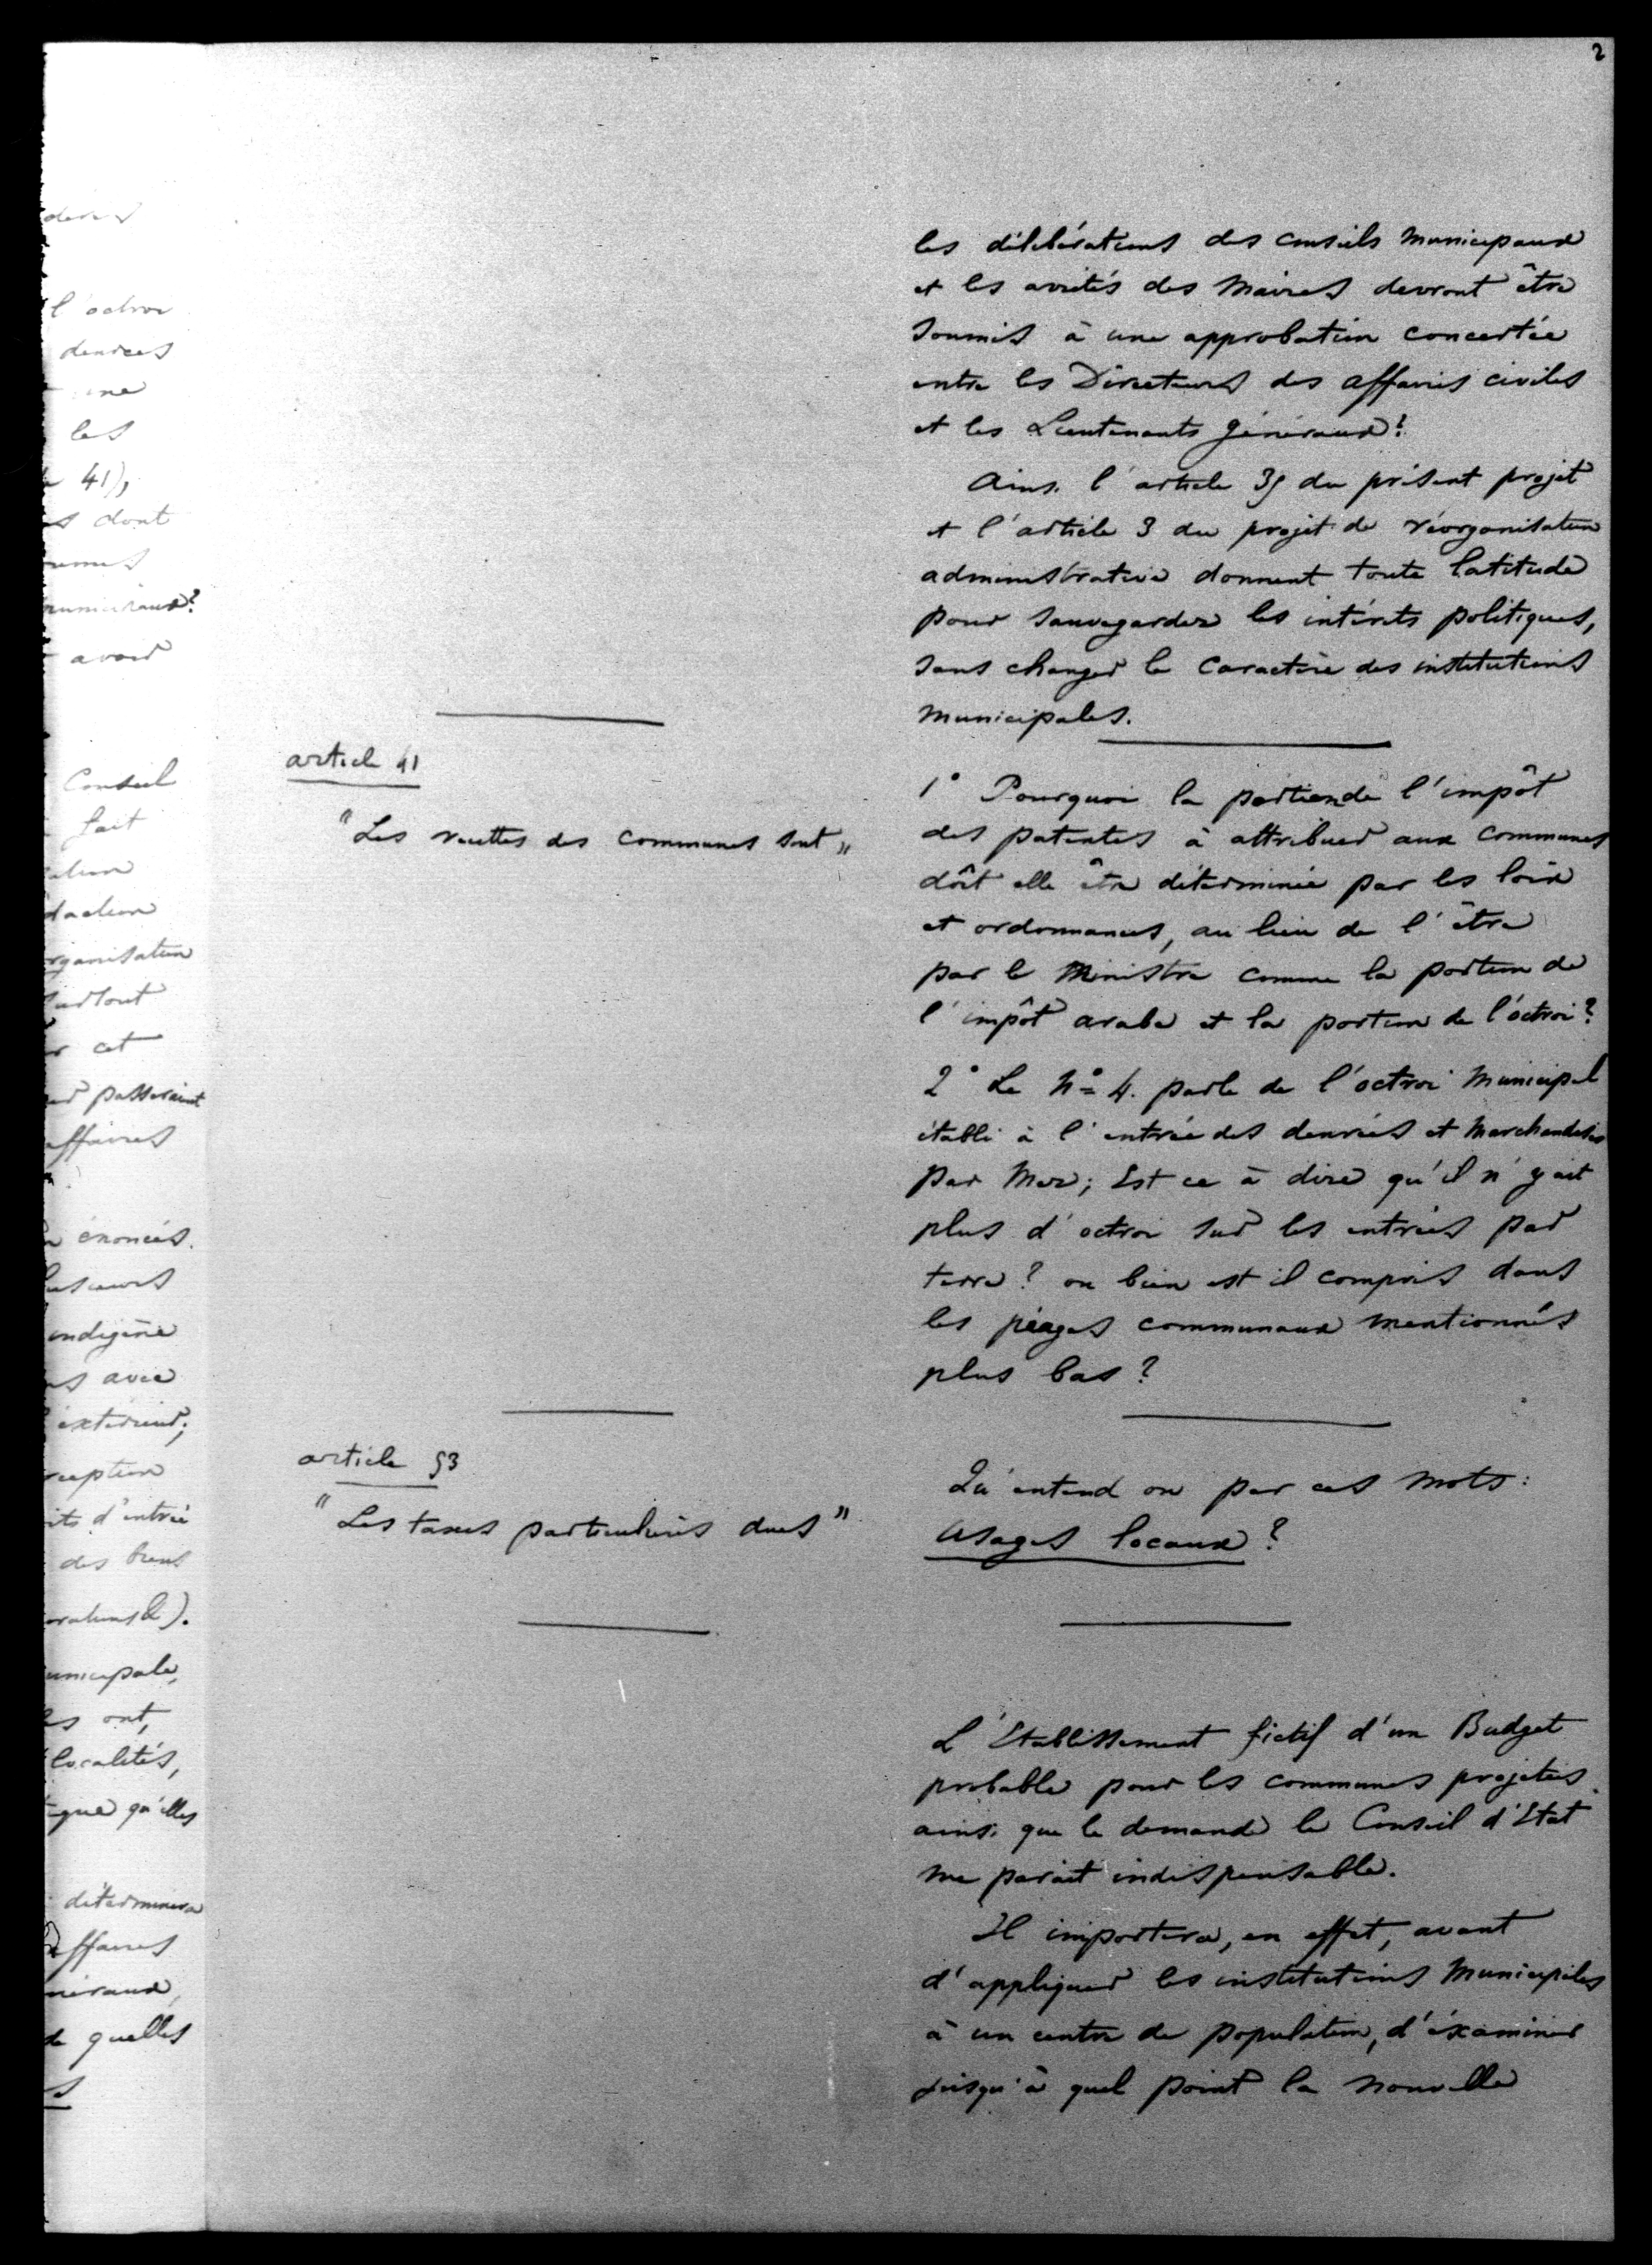 2
les délibérations des conseils Municipaux
et les arrêtés des Maires devront être
soumis à une approbation concertée
entre les Directeurs des affaires civiles
et les Lieutenants Généraux?
Ainsi l'article 39 du présent projet
et l'article 3 du projet de réorganisation
administrative donnent toute latitude
pour sauvegarder les intérêts politiques,
sans changer le caractère des institutions
Municipales.
article 41
"Les recettes des communes sont"
1° Pourquoi la portion de l'impôt
des patentes à attribuer aux communes
dôit elle être déterminée par les loix
et ordonnances, au lieu de l'être
par le Ministre comme la portion de
l'impôt arabe et la portion de l'octroi?
2° Le N° 4. parle de l'octroi Municipal
établi à l'entrée des denrées et Marchandises
par Mer; Est ce à dire qu'il n'y ait
plus d'octroi sur les entrées par
terre? ou bien est il compris dans
les péages communaux mentionnés
plus bas?
article 53
"Les taxes particulières dues"
Qu'entend on par ces mots:
usages locaux?
L'Etablissement fictif d'un Budget
probable pour les communes projetées
ainsi que le demande le Conseil d'Etat
me parait indispensable.
Il importera, en effet, avant
d'appliquer les institutions Municipales
à un centre de population, d'éxaminer
jusqu'à quel point la nouvelle
l'octroi
denrées
les
41),
dont
avoir
Conseil
fait
surtout
cet
passeraient
affaires
énoncés.
indigène
avec
extérieur;
d'entrée
des biens
ont,
localités,
qu'elles
déterminera
affaires
quelles